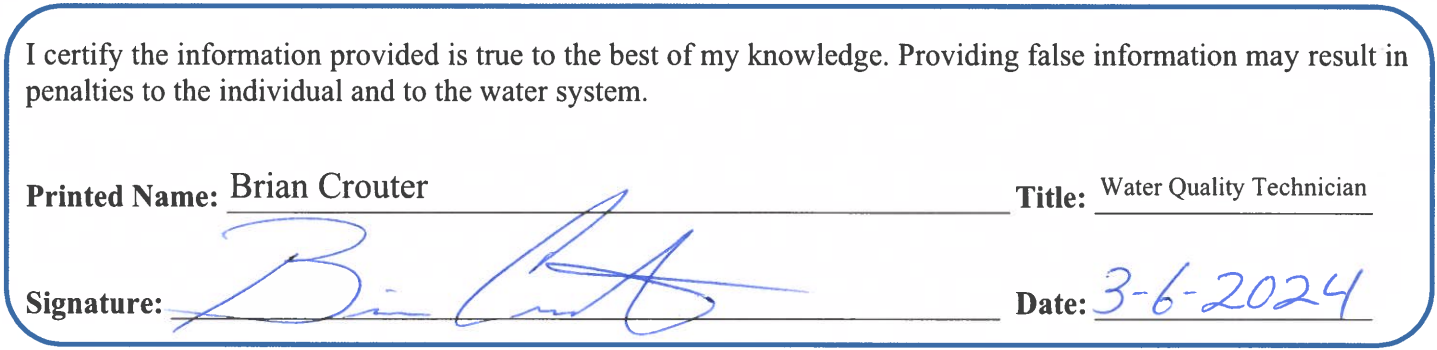 I certify the information provided is true to the best of my knowledge. Providing false information may result in
penalties to the individual and to the water system.
Printed Name: Brian Crouter Title: Water Quality Technician
Signature: Date: 3-6-2024